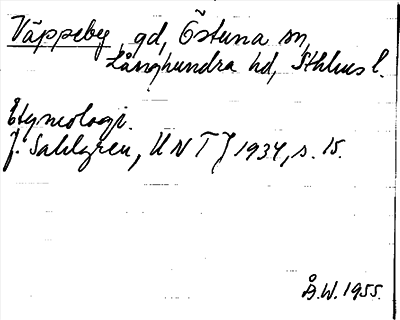 Väppeby, gd, Östuna sn,
Långhundra hd, Sthlms l.
Etymologi.
J. Sahlgren, UNTJ 1934, s. 15.
Å.W. 1955.